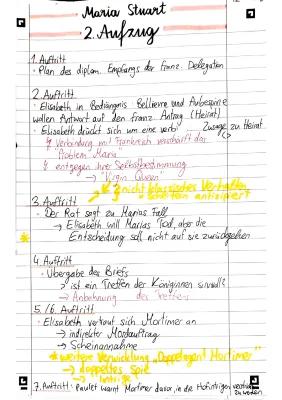 Maria Stuart
2. Aufzug
1. Auftritt
· Plan des diplom. Empfangs der franz. Delegation
2. Auftritt
· Elisabeth in Bedrängnis Bellievre und Aubespine
wollen Antwort auf den franz. Antrag (Heirat)
· Elisabeth drückt sich um eine verbi Zusage zu Heirat
↯ Verbindung mit Frankreich verschärft das
"Problem Maria"
↯ entgegen ihrer Selbstbestimmung
→ "Virgin Queen"
nicht klassisches Verhalten
antizipiert
3. Auftritt
· Der Rat sagt zu Marias Fall
→ Elisabeth will Marias Tod, aber die
Entscheidung soll nicht auf sie zurückgehen
4. Auftritt
· Übergabe des Briefs
→ ist ein Treffen der Königinnen sinnvoll?
→ Anbahnung des Treffens
5./6. Auftritt
· Elisabeth vertraut sich Mortimer an
→ indirekter Mordauftrag
→ Scheinannahme
* weitere Verwicklung "Doppelagent Mortimer"
→ doppeltes Spiel
→ Intrige
7. Auftritt: Paulet warnt Mortimer davor, in die Hofintrigen
zu werden